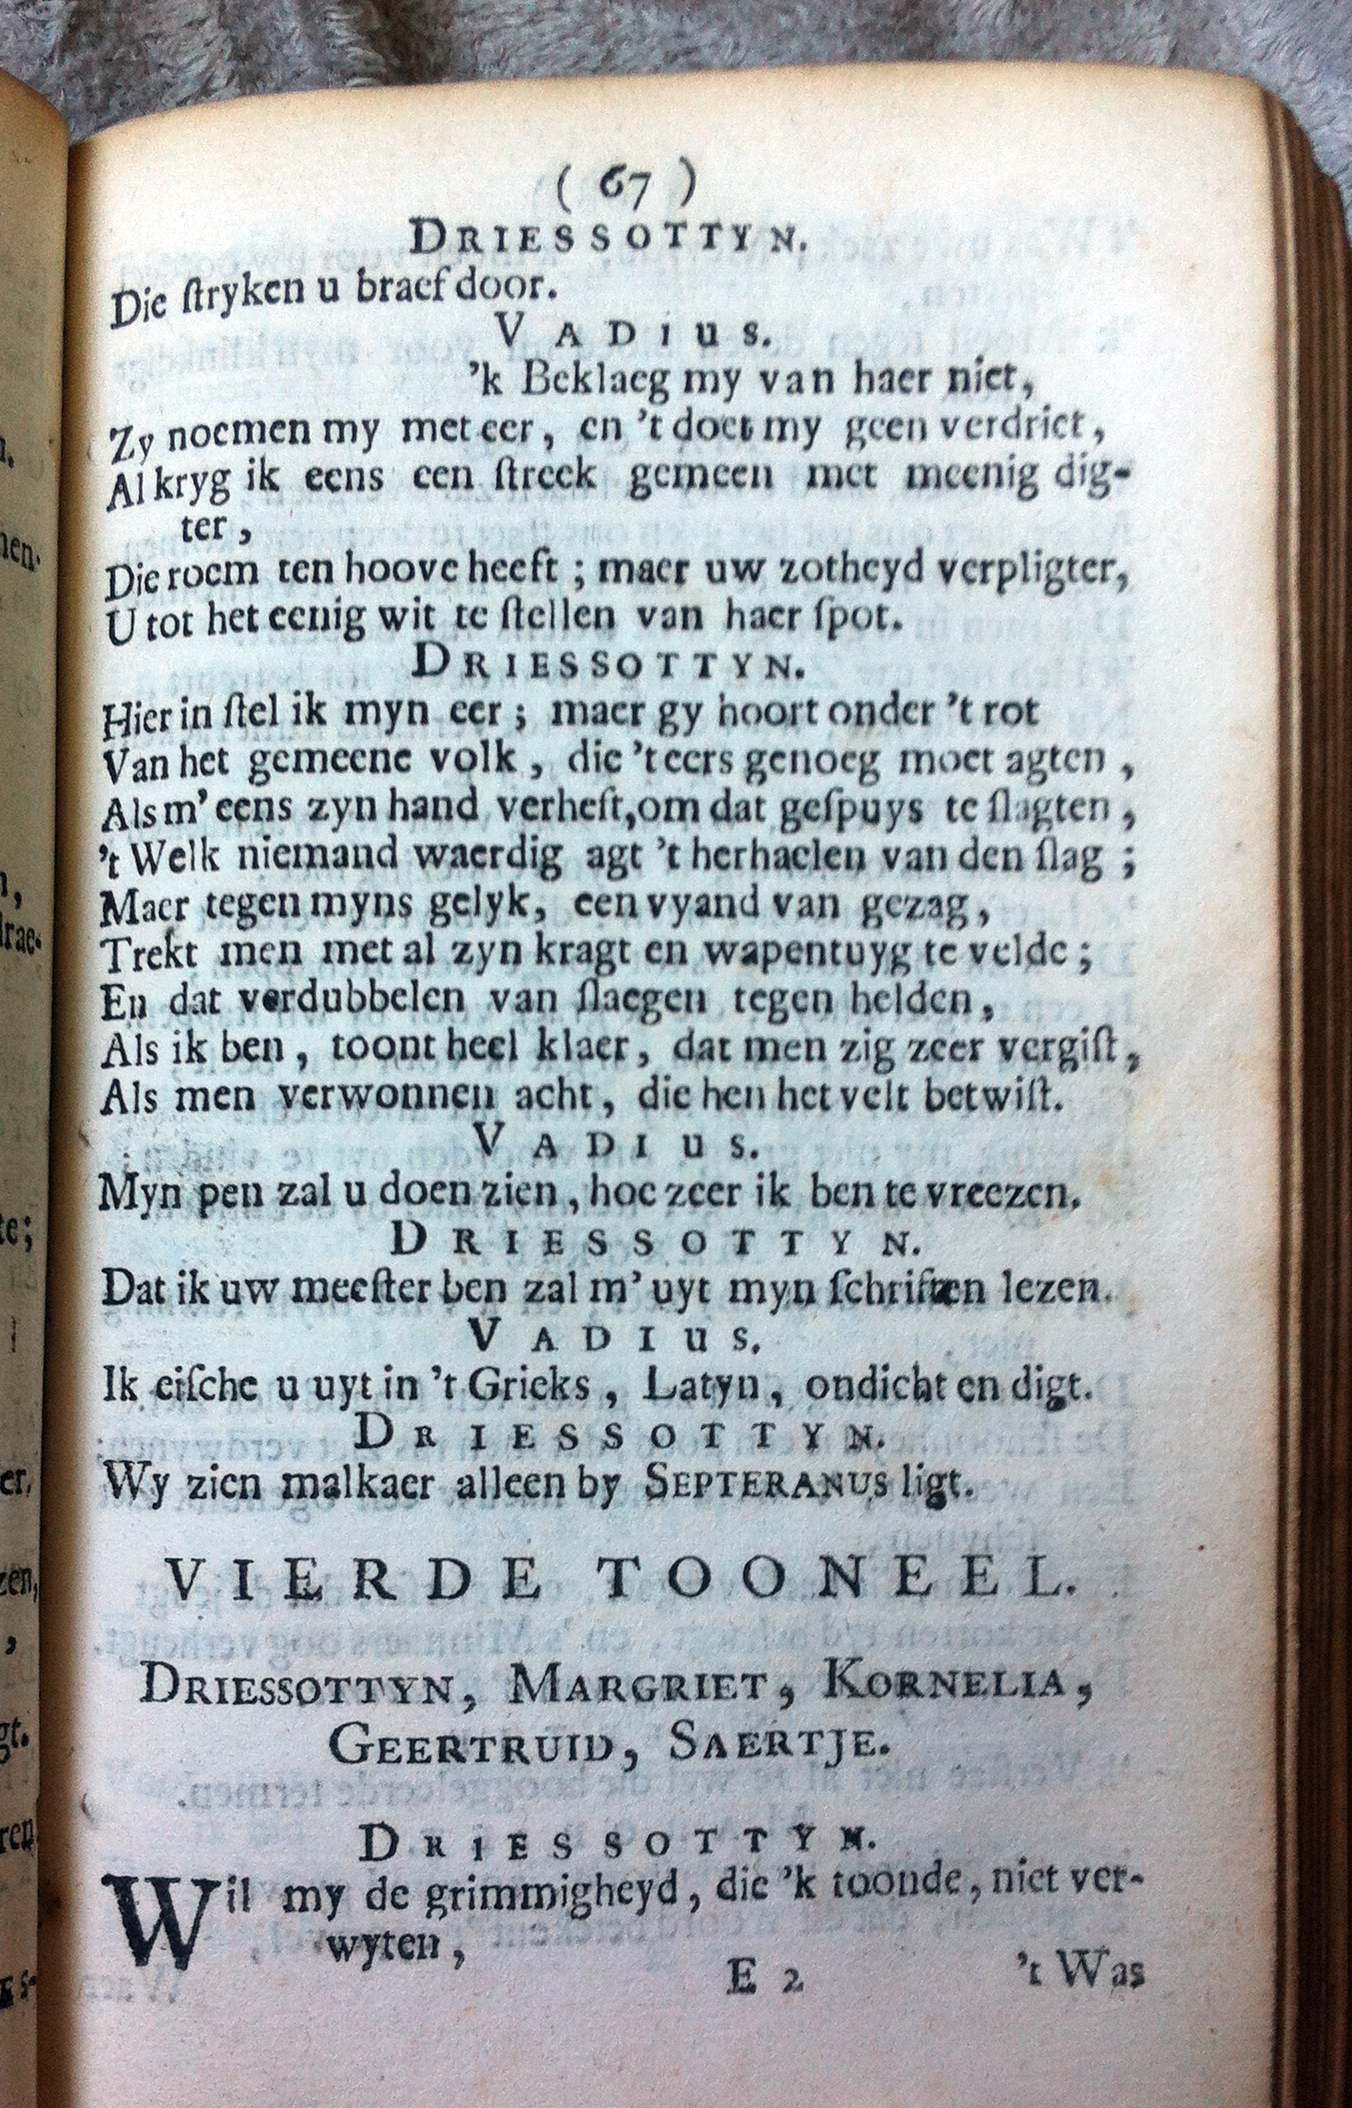 ( 67 )
DRIESSOTTYN.
Die ſtryken u braef door.
VADIUS.
'k Beklaeg my van haer niet,
Zy noemen my met eer, en 't doet my geen verdriet,
Al kryg ik eens een ſtreek gemeen met meenig dig-
ter,
Die roem ten hoove heeft; maer uw zotheyd verpligter,
U tot het eenig wit te ſtellen van haer ſpot.
DRIESSOTTYN.
Hier in ſtel ik myn eer; maer gy hoort onder 't rot
Van het gemeene volk, die 't eers genoeg moet agten,
Als m' eens zyn hand verheft, om dat geſpuys te ſlagten,
't Welk niemand waerdig agt 't herhaelen van den ſlag;
Maer tegen myns gelyk, een vyand van gezag,
Trekt men met al zyn kragt en wapentuyg te velde;
En dat verdubbelen van ſlaegen tegen helden,
Als ik ben, toont heel klaer, dat men zig zeer vergiſt,
Als men verwonnen acht, die hen het velt betwiſt.
VADIUS.
Myn pen zal u doen zien, hoe zeer ik ben te vreezen.
DRIESSOTTYN.
Dat ik uw meeſter ben zal m' uyt myn ſchriften lezen.
VADIUS.
Ik eiſche u uyt in 't Grieks, Latyn, ondicht en digt.
DRIESSOTTYN.
Wy zien malkaer alleen by SEPTERANUS ligt.
VIERDE TOONEEL.
DRIESSOTTYN, MARGRIET, KORNELIA,
GEERTRUID, SAERTJE.
DRIESSOTTYN.
Wil my de grimmigheyd, die 'k toonde, niet ver-
wyten,
E 2 't Was